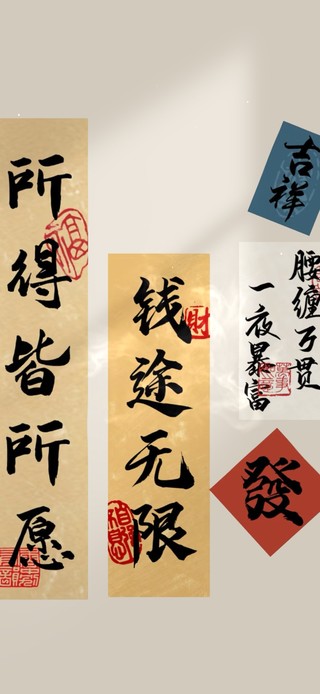 所得皆所愿
福
钱途无限
財
吉祥
腰缠万贯
一夜暴富
發